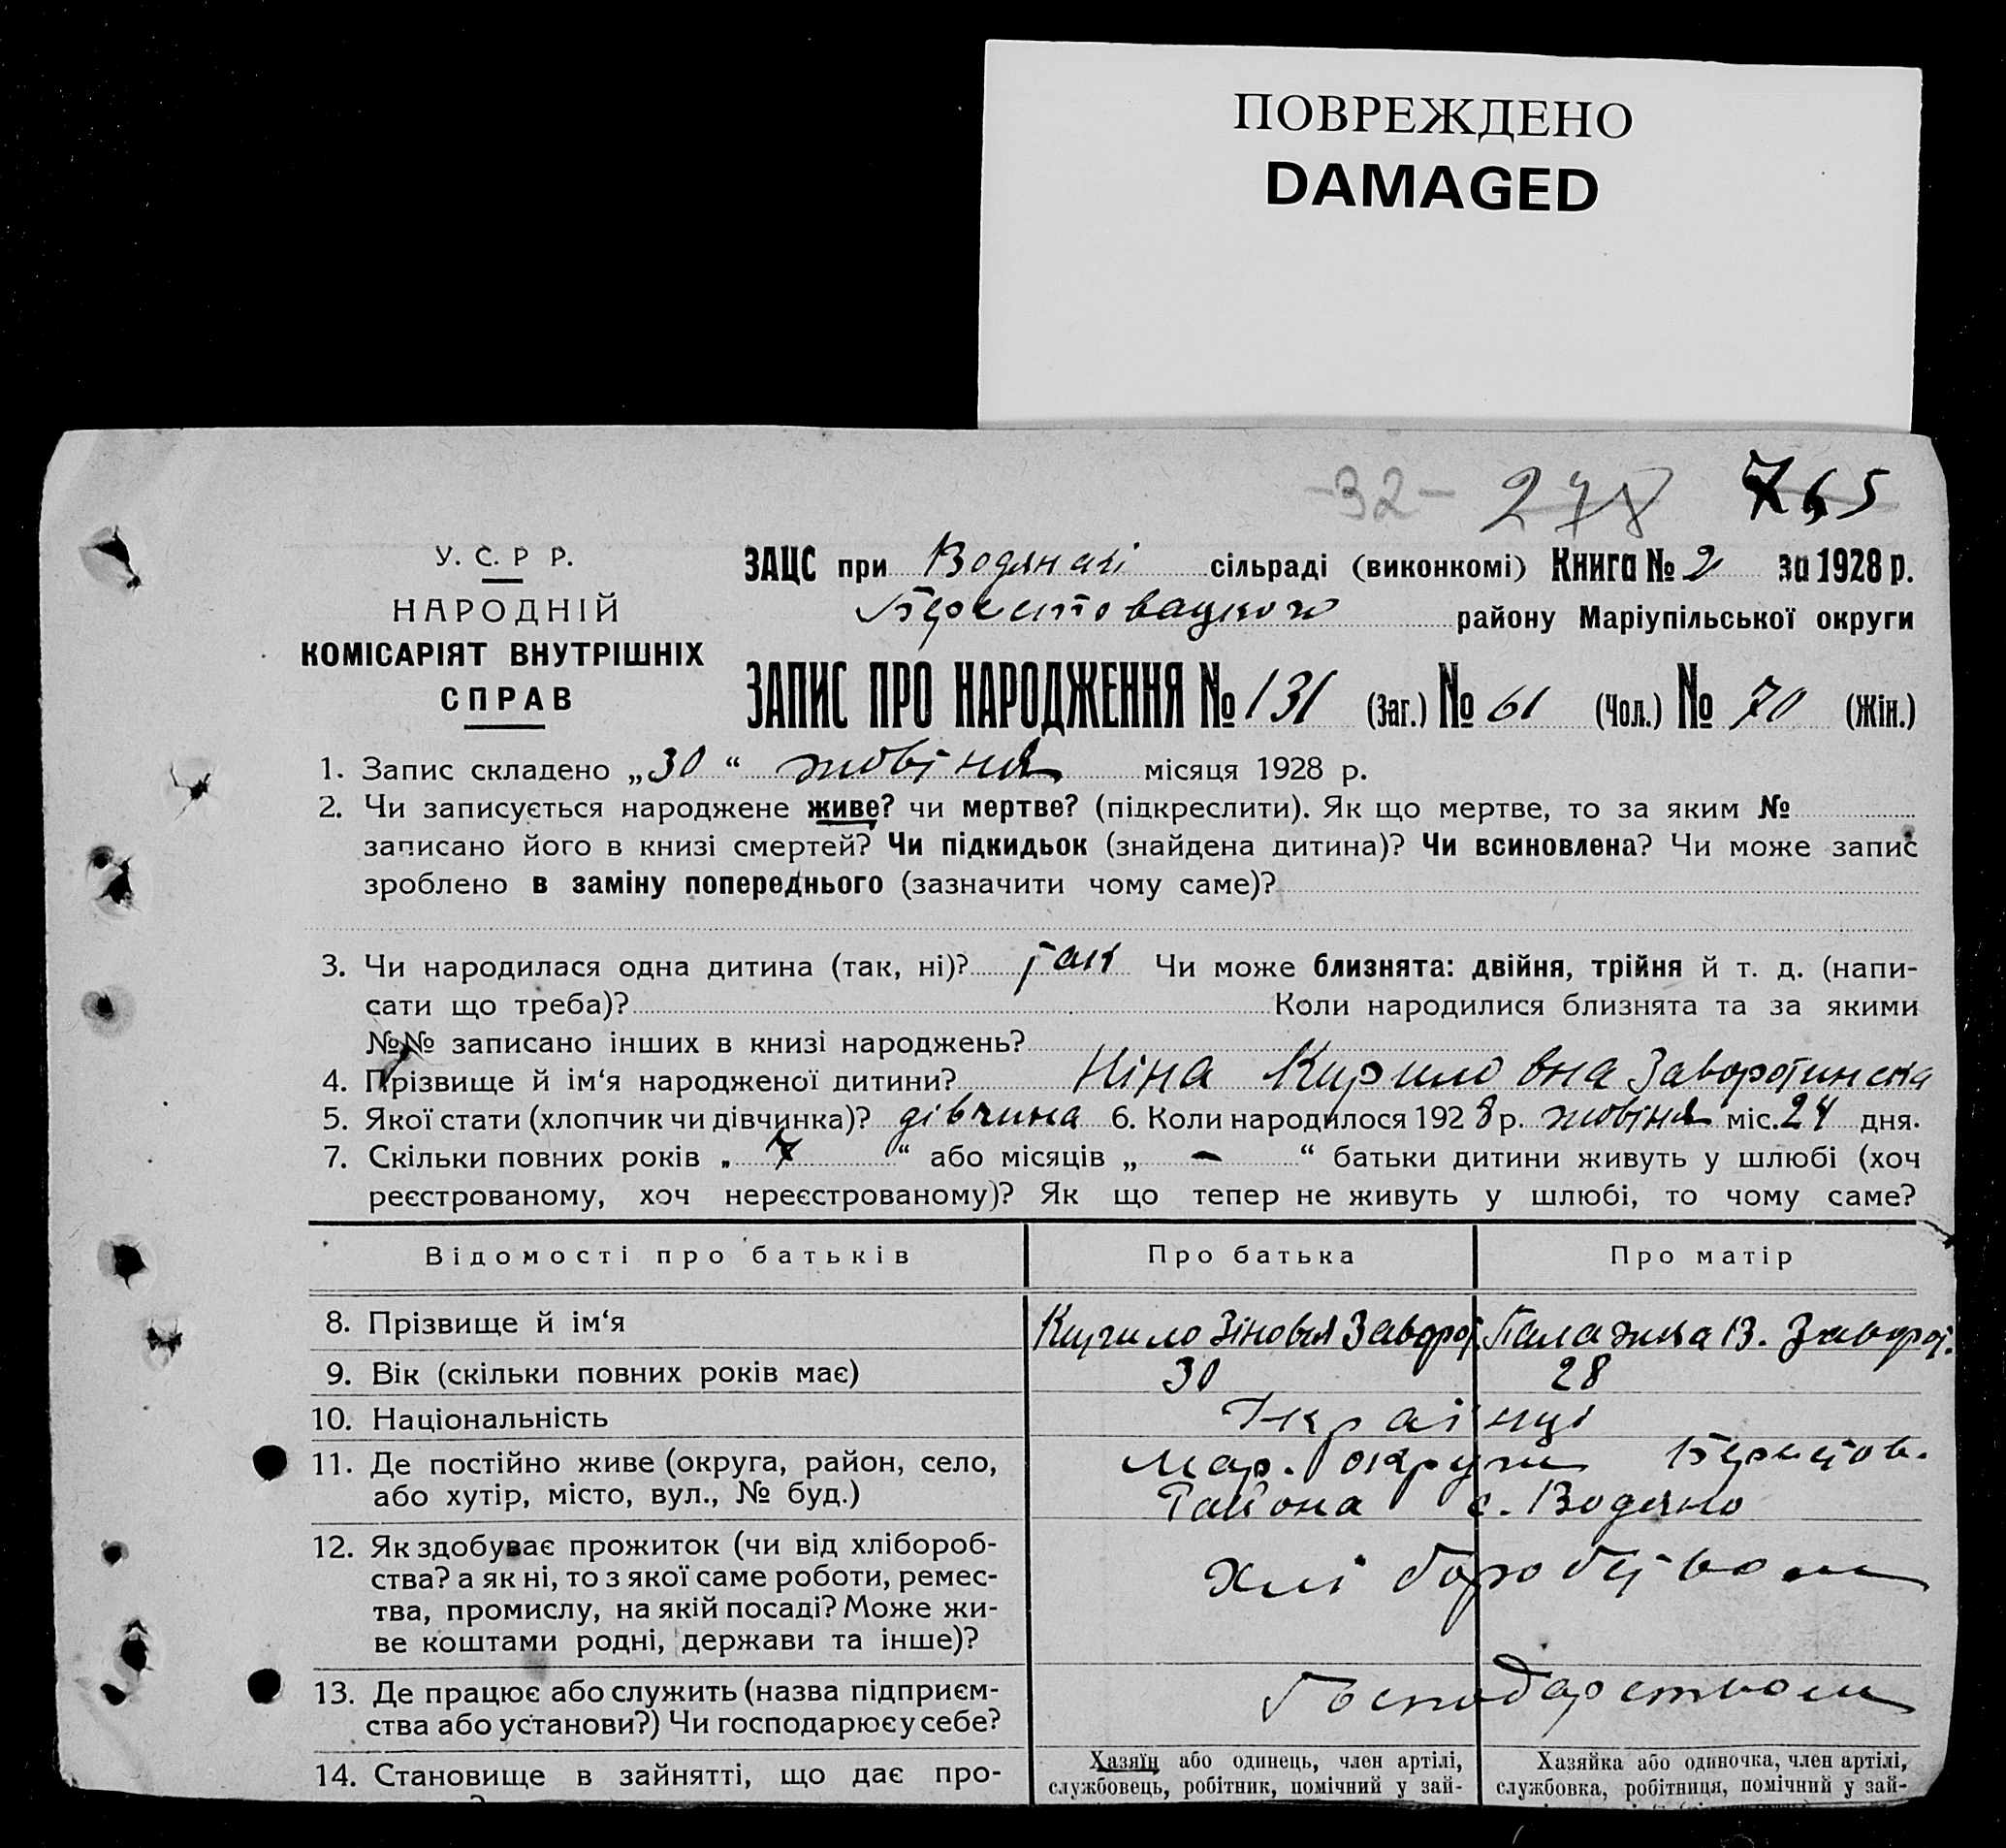 ПОВРЕЖДЕНО
DAMAGED
-32- 278 765
У. С. Р Р.
НАРОДНІЙ
КОМІСАРІЯТ ВНУТРІШНІХ
СПРАВ
ЗАЦС при Водянкі сільраді (виконкомі) Книга № 2 за 1928 р.
району Маріупільської округи
ЗАПИС ПРО НАРОДЖЕННЯ № 131 (Заг.) № 61 (Чол.) № 70 (Жін.)
1. Запис складено „30“ жовтня місяця 1928 р.
2. Чи записується народжене живе? чи мертве? (підкреслити). Як що мертве, то за яким №
записано його в книзі смертей? Чи підкидьок (знайдена дитина)? Чи всиновлена? Чи може запис
зроблено в заміну попереднього (зазначити чому саме)?
3. Чи народилася одна дитина (так, ні)? так Чи може близнята: двійня, трійня й т. д. (напи-
сати що треба)? Коли народилися близнята та за якими
№№ записано інших в книзі народжень?
4. Прізвище й ім‘я народженої дитини? Ніна Кирило вна Заворотинска
5. Якої стати (хлопчик чи дівчинка)? дівчина 6. Коли народилося 1928 р. жовтня міс. 24 дня.
7. Скільки повних років „ 7 “ або місяців „ - “ батьки дитини живуть у шлюбі (хоч
реєстрованому, хоч нереєстрованому)? Як що тепер не живуть у шлюбі, то чому саме?
Відомості про батьків Про батька Про матір
8. Прізвище й ім‘я Кирило Зіновія Заворот. Палажка В. Заворот.
9. Вік (скільки повних років має) 30 28
10. Національність Українці
11. Де постійно живе (округа, район, село, Мар. округи
або хутір, місто, вул., № буд.) Района с. Водяно
12. Як здобуває прожиток (чи від хлібороб-
ства? а як ні, то з якої саме роботи, ремес- Хліборобством
тва, промислу, на якій посаді? Може жи-
ве коштами родні, держави та інше)?
13. Де працює або служить (назва підприєм- Господарством
ства або установи?) Чи господарює у себе?
14. Становище в зайнятті, що дає про- Хазяїн або одинець, член артілі, Хазяйка або одиночка, член артілі,
службовець, робітник, помічний у зай- службовка, робітниця, помічний у зай-